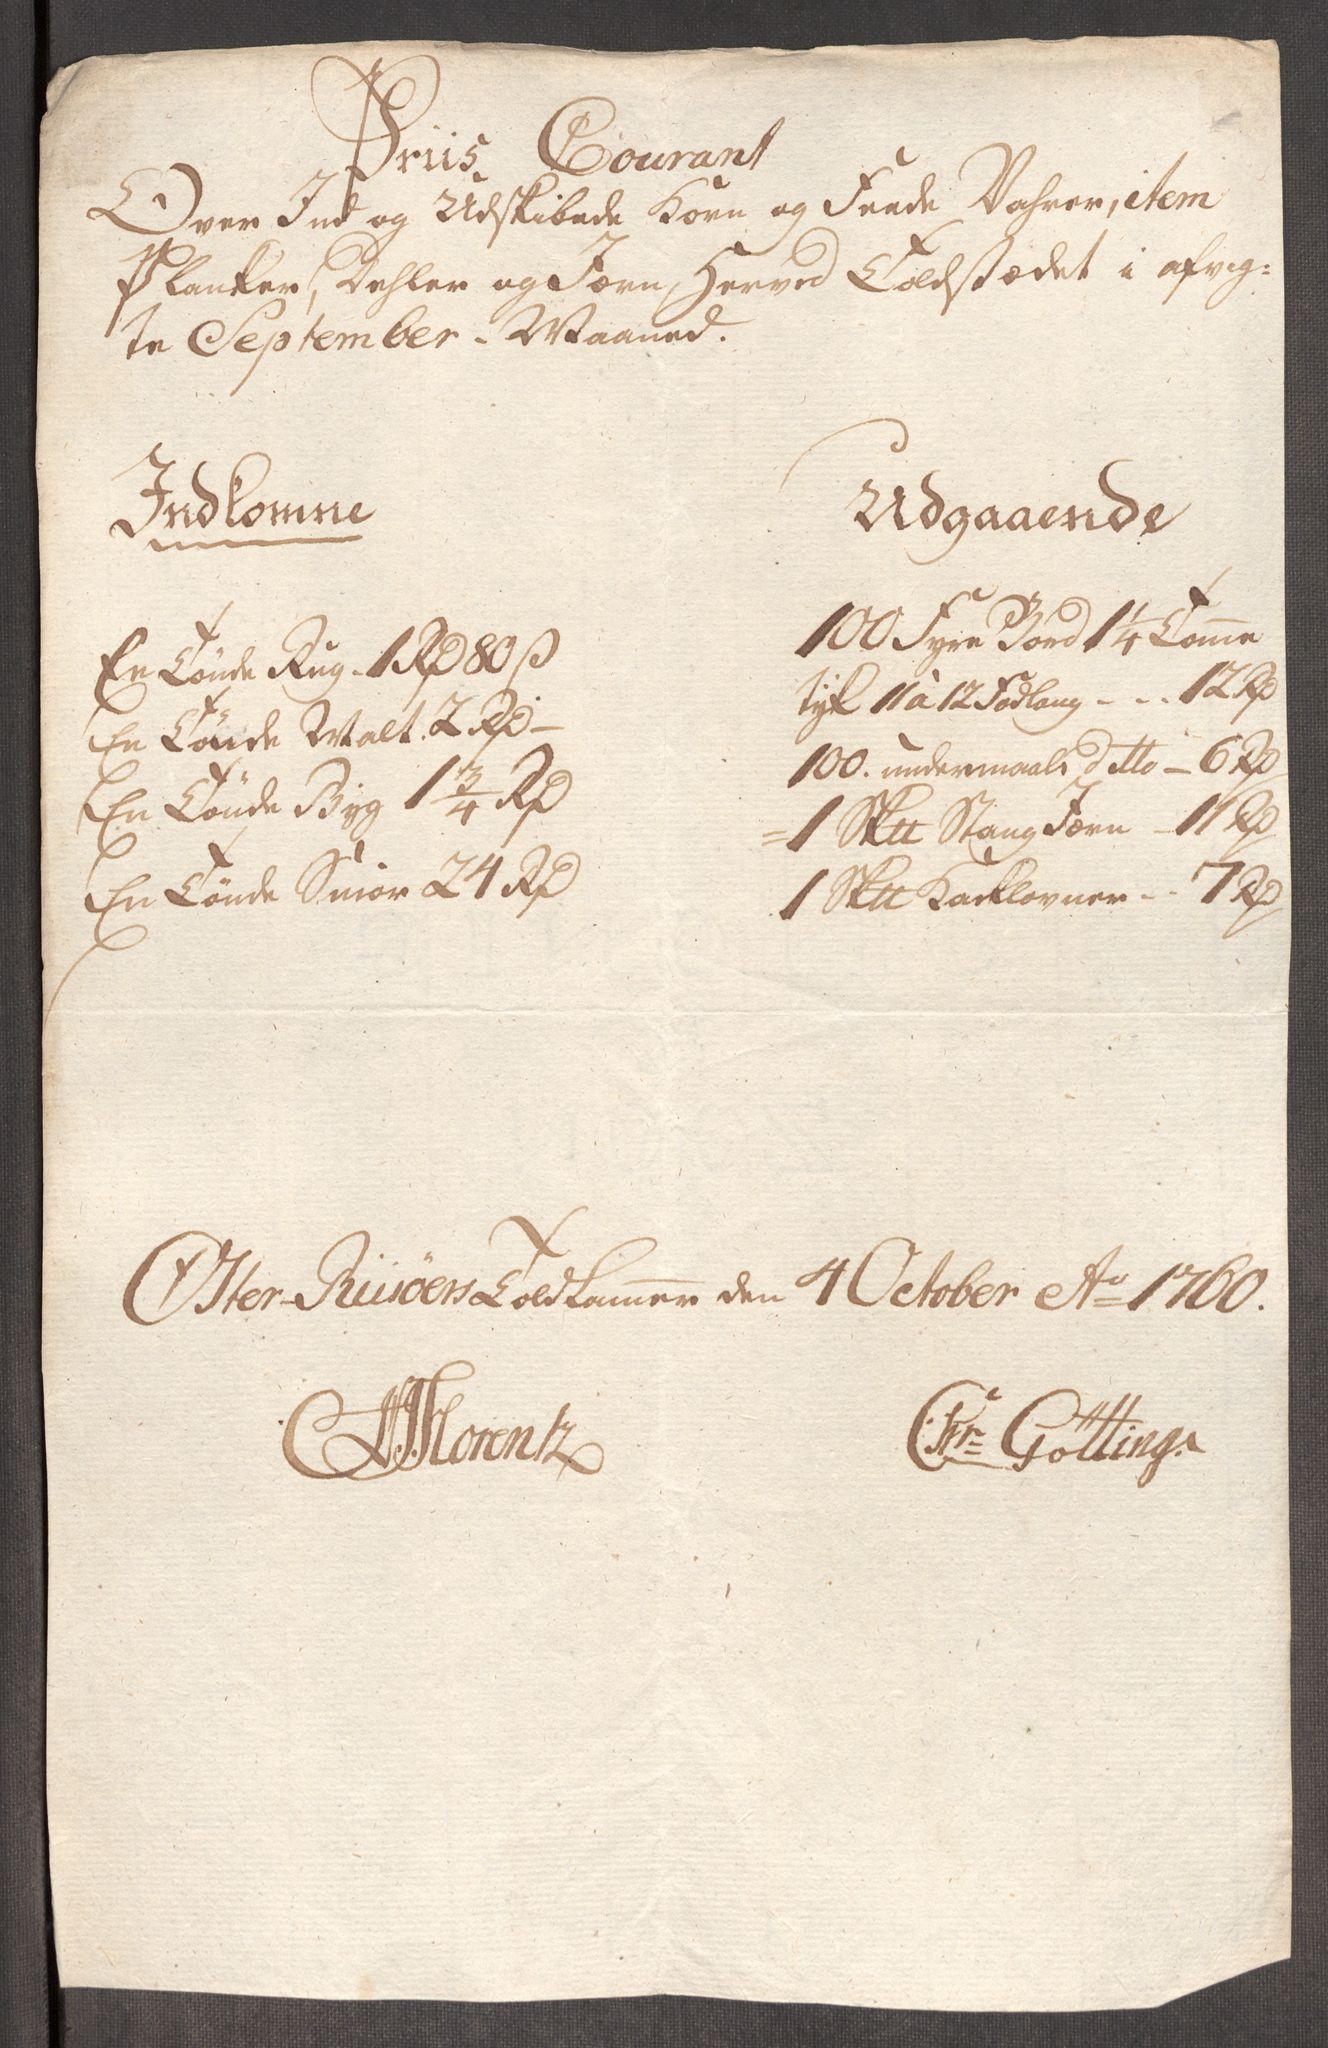 Priis Courant
Over Ind og Udskibede Korn og Feede Vahrer, item
Planker, Dehler og Jærn, Herved Toldstædet i afvig=
te September-Maaned.
Indkomne
En Tönde Rug 1 Rd 80 ß
En Tönde Malt. 2 Rd -
En Tönde Byg 1 3/4 Rd
En Tönde Smör 24 Rd
Udgaaende
100 Fyre Bord 1 1/4 Tomme
tyk 11 à 12 Fod lang - - - 12 Rd
100. undermaals ditto - 6 Rd
1 Sk℔ Stang Jærn - 11 Rd
1 Sk℔ Kackelovner - - 7 Rd
Öster-Riisöers Toldkammer den 4 October Ao 1760.
Lorentz
Chr= Götting.